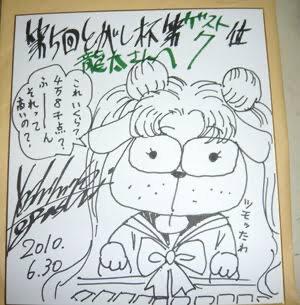 第5回とがし杯第7位
ゲスト
龍太さんへ
これいくら?
4万8千点?
ふーん
それって
高いの?
ツモったわ
2010.
6.30